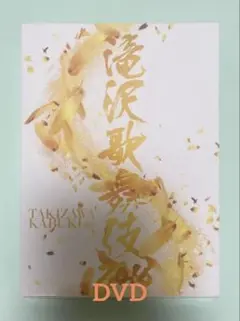 滝沢歌舞伎
TAKIZAWA
KABUKI
DVD